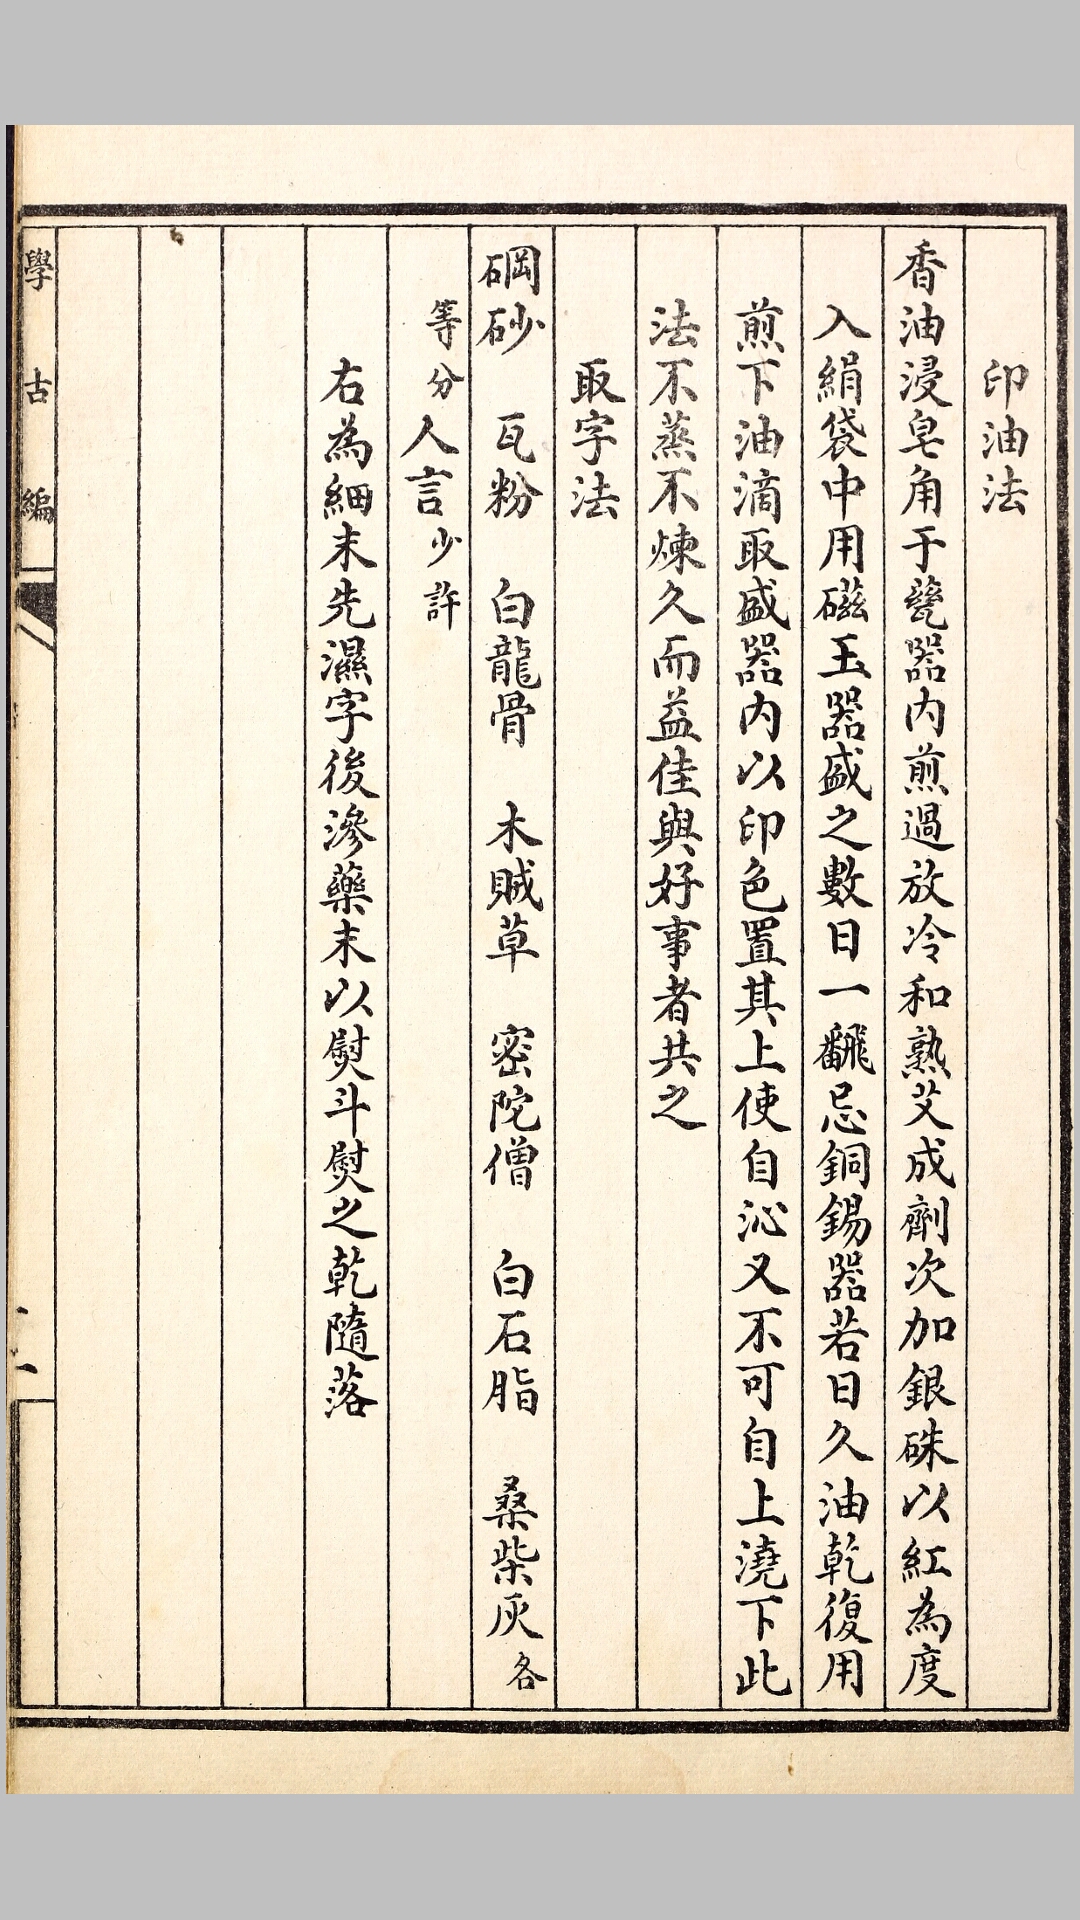 印油法
香油浸皂角于甆器内煎過放冷和熟艾成劑次加銀硃以紅為度
入絹袋中用磁玉器盛之數日一飜忌銅錫器若日久油乾復用
煎下油滴取盛器内以印色置其上使自沁又不可自上澆下此
法不蒸不煉久而益佳與好事者共之
取字法
碙砂　瓦粉　白龍骨　木賊草　密陀僧　白石脂　桑柴灰各
等分人言少許
右為細末先濕字後滲藥末以熨斗熨之乾隨落
學古編